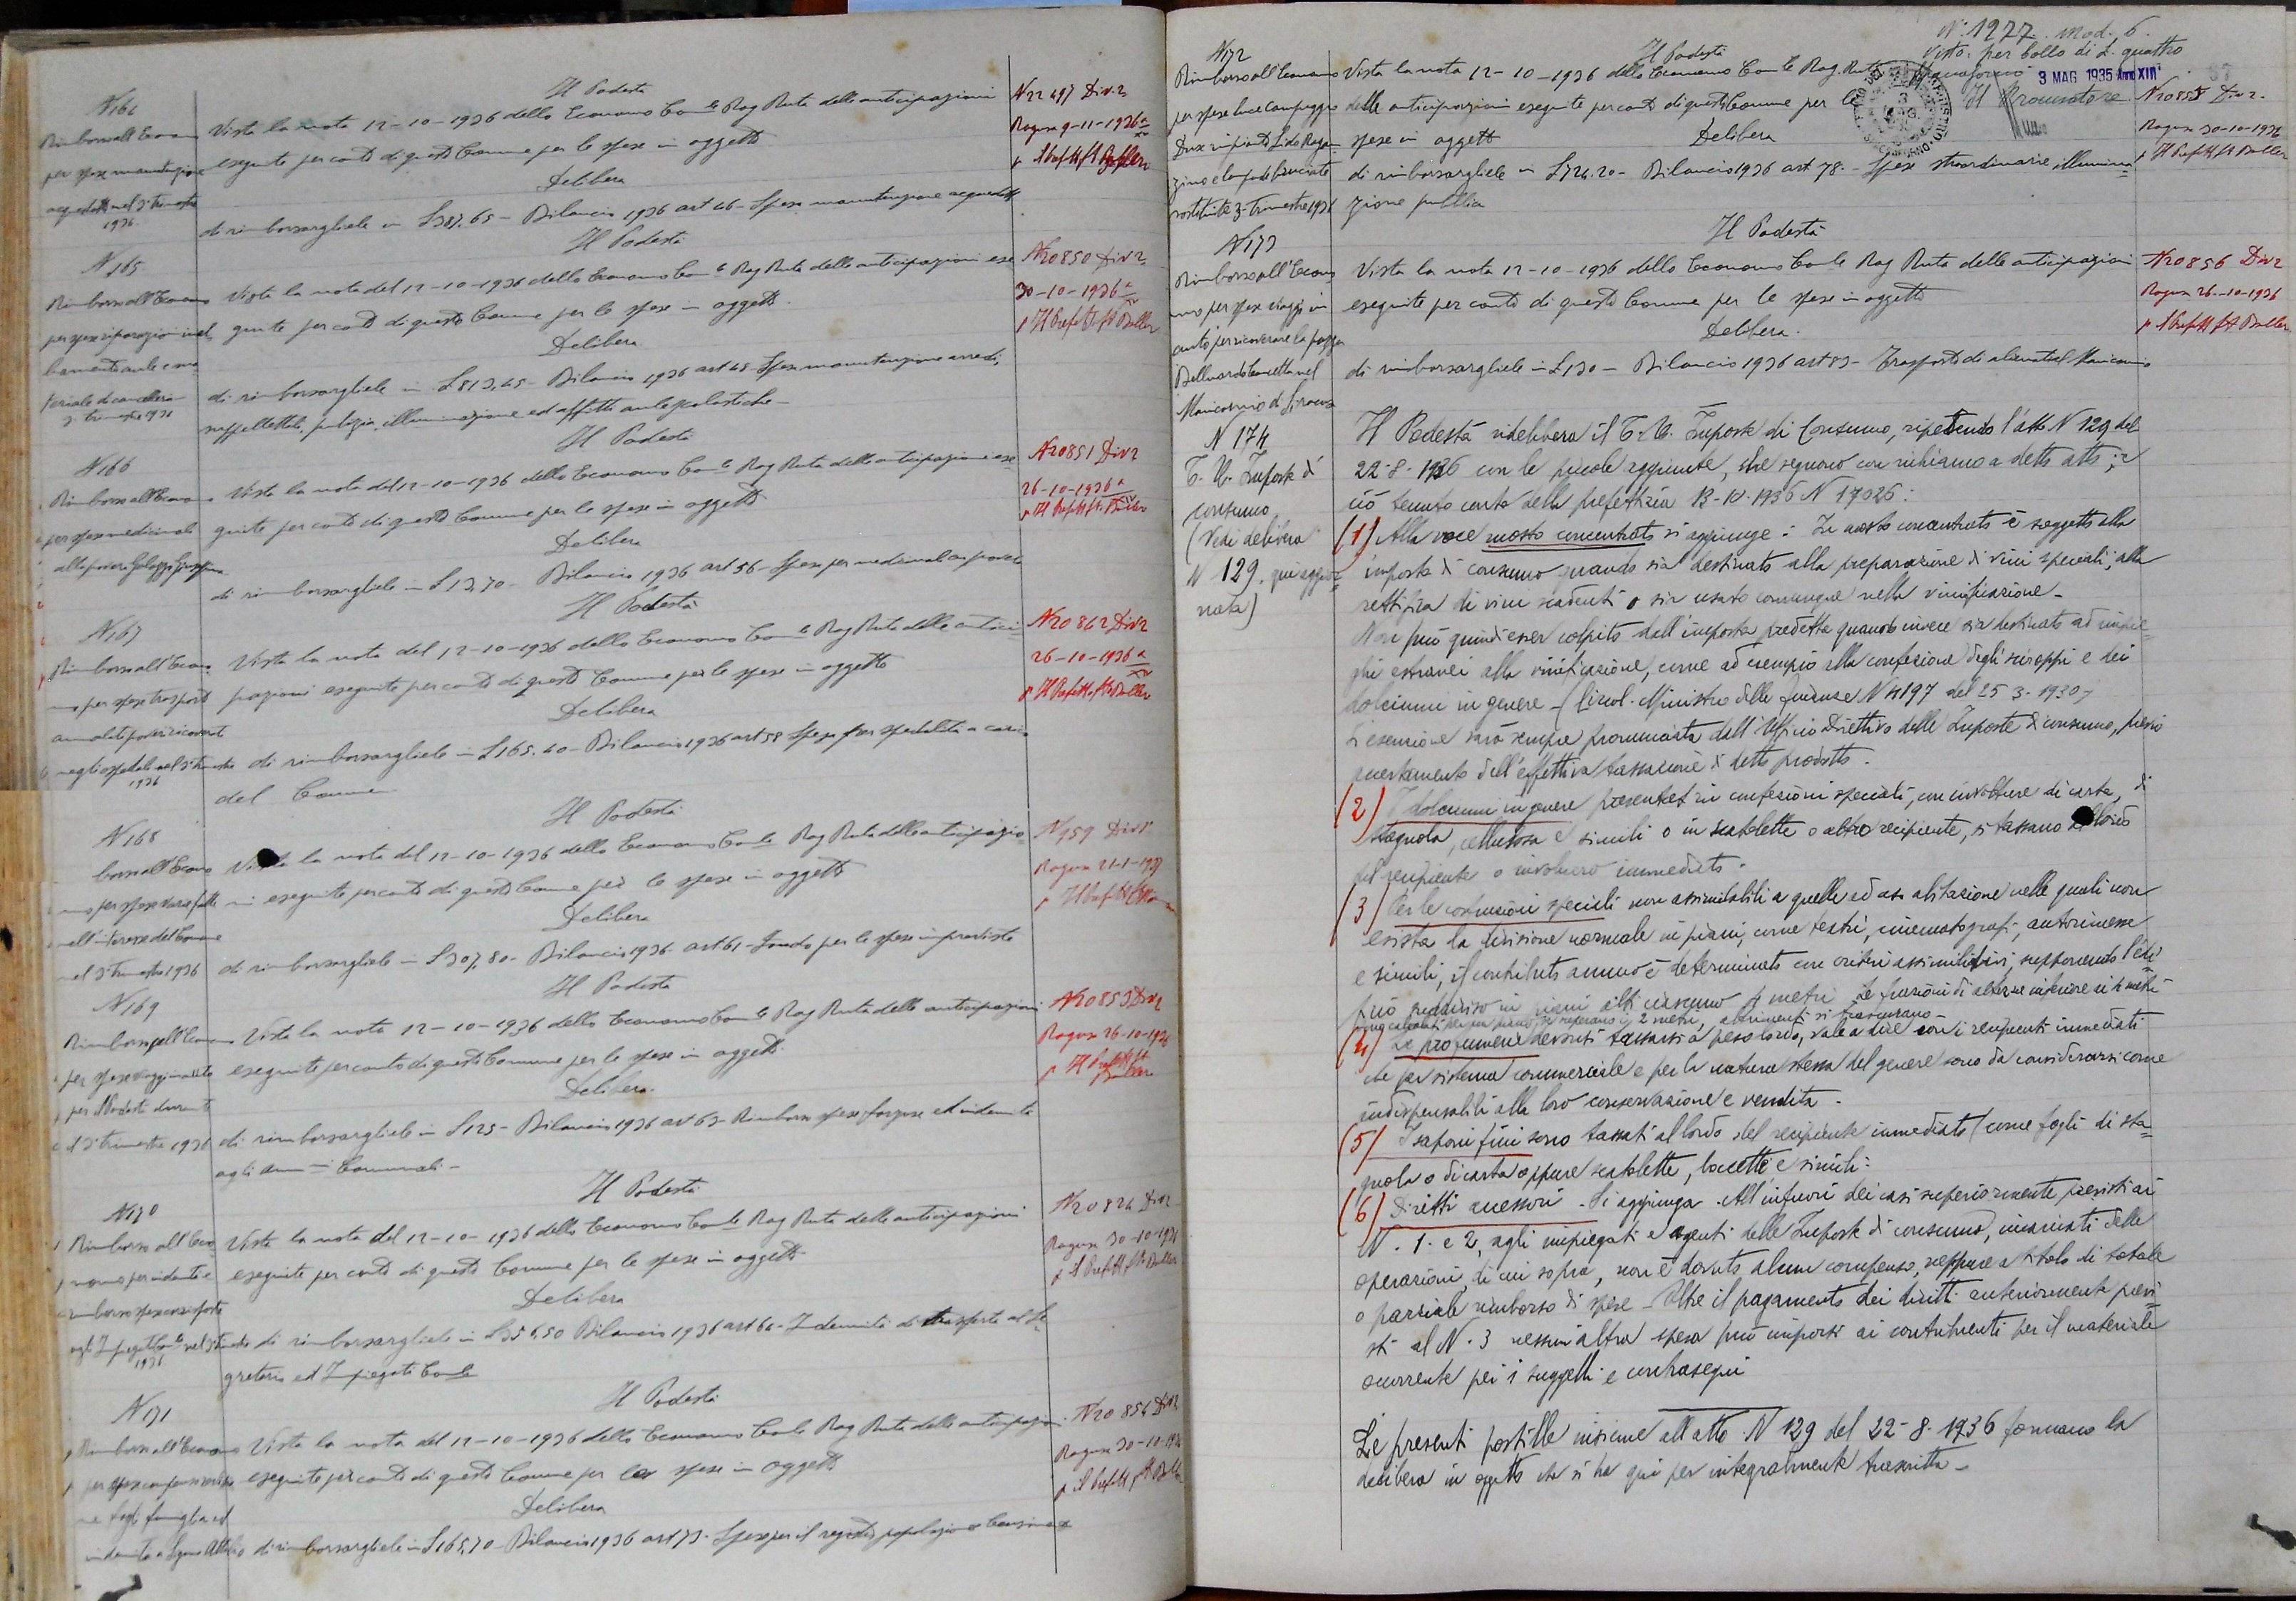 N 164
Rimborso all'Econ
per spese manutenzione
acquedotto nel 3° trimestre
1936
Il Podestà
Vista la nota 12-10-1936 dello Economo Com.le Rag Ruta delle anticipazioni
eseguite per conto di questo Comune per le spese in oggetto
Delibera
di rimborsargliele in L 387,65 - Bilancio 1936 art 46 - Spese manutenzione acquedotto
N 22497 Div. 2
Ragusa 9-11-1936
N 165
Rimborso all'Economo
per spese riparazioni
Il Podestà
Vista la nota del 12-10-1936 dello Economo Com.le Rag Ruta delle anticipazioni ese
guite per conto di questo Comune per le spese in oggetto.
Delibera
di rimborsargliele in L 813,45 - Bilancio 1936 art 45 - Spese manutenzione arredi,
suppellettili, pulizia, illuminazione ed affitti aule scolastiche -
N 20850 Div 2
30-10-1936
p Il Prefetto ft Baller
N 166
Rimborso all'Econo
per spese medicinali
alla povera Galazzo
Il Podestà
Vista la nota del 12-10-1936 dello Economo Com.le Rag Ruta delle anticipazioni ese
guite per conto di questo Comune per le spese in oggetto
Delibera
di rimborsargliele in L 13,70 - Bilancio 1936 art 56 - Spese per medicinali ai poveri
N 20851 Div 2
26-10-1936
p Il Prefetto ft Baller
N 167
Rimborso all'Econo
mo per spese trasporto
ammalati poveri ricoverati
negli ospedali nel 3° trimestre
1936
Il Podestà
Vista la nota del 12-10-1936 dello Economo Com.le Rag Ruta delle antici
pazioni eseguite per conto di questo Comune per le spese in oggetto
Delibera
di rimborsargliele in L 165,40 - Bilancio 1936 art 58 Spese per spedalità a carico
del Comune
N 20862 Div 2
26-10-1936
p Il Prefetto ft Baller
N 168
borso all'Econo
mo per spese varie fatte
nell'interesse del Comune
nel 3° trimestre 1936
Il Podestà
Vista la nota del 12-10-1936 dello Economo Com.le Rag Ruta delle anticipazio
ni eseguite per conto di questo Comune per le spese in oggetto
Delibera
di rimborsargliele in L 307,80 - Bilancio 1936 art 61 - Fondo per le spese impreviste
N 959 Div 2
Ragusa 21-1-1937
N 169
Rimborso all'Econo
per spese viaggi in auto
per il Podestà durante
il 3° trimestre 1936
Il Podestà
Vista la nota 12-10-1936 dello Economo Com.le Rag Ruta delle anticipazioni
eseguite per conto di questo Comune per le spese in oggetto.
Delibera.
di rimborsargliele in L 125 - Bilancio 1936 art 63 - Rimborso spese forzose ed indennità
agli Amm.ri Comunali -
N 20853 Div 2
Ragusa 26-10-1936
p Il Prefetto ft
Baller
N 170
Rimborso all'Eco
nomo per indennità e
rimborso spese
agli Impiegati Com.li nel 3° trimestre
1936
Il Podestà
Vista la nota del 12-10-1936 dello Economo Com.le Rag Ruta delle anticipazioni
eseguite per conto di questo Comune per le spese in oggetto
Delibera
di rimborsargliele in L 356,50 Bilancio 1936 art 64 - Indennità di trasferte al Se
gretario ed Impiegati Com.le
N 20824 Div 2
Ragusa 30-10-1936
p Il Prefetto ft Baller
N 171
Rimborso all'Economo
Il Podestà
Vista la nota del 12-10-1936 dello Economo Com.le Rag Ruta delle anticipazioni
eseguite per conto di questo Comune per le spese in oggetto
Delibera
di rimborsargliele in L 165,70 - Bilancio 1936 art 73 - Spese per il registro popolazione
N 20854 Div 2
Ragusa 30-10-1936
p il Prefetto ft Baller
N° 1277. mod. 6.
Visto per bollo di L. quattro
3 MAG 1935 Anno XIII
Il Procuratore
N 172
Rimborso all'Economo
per spese luce Campeggio
Dux impianto Lido Raga
zino e lampade bruciate
sostituite 3° trimestre 1936
Il Podestà
Vista la nota 12-10-1936 dello Economo Com.le Rag. Ruta
delle anticipazioni eseguite per conto di questo Comune per le
spese in oggetto
Delibera
di rimborsargliele in L 724.20 - Bilancio 1936 art 78. - Spese straordinarie illumina=
zione pubblica
N 20855 Div 2.
Ragusa 30-10-1936
p Il Prefetto ft Baller
N 173
Rimborso all'Econo
mo per spese viaggi in
auto per ricoverare la pazza
Belluardo Concetta nel
Manicomio di Siracusa
Il Podestà
Vista la nota 12-10-1936 dello Economo Com.le Rag Ruta delle anticipazioni
eseguite per conto di questo Comune per le spese in oggetto
Delibera.
di rimborsargliele in L 130 - Bilancio 1936 art 83 - Trasporto di alienati nel Manicomio
N 20856 Div 2
Ragusa 26-10-1936
p Il Prefetto ft Baller
N 174
T. U. Imposte di
consumo
(Vedi delibera
N 129, qui aggior=
nata)
Il Podestà ridelibera il T. U. Imposte di Consumo, ripetendo l'atto N 129 del
22-8-1936 con le piccole aggiunte, che seguono con richiamo a detto atto; e
ciò tenuto conto della prefettizia 13-10-1936 N 17026:
(1) Alla voce mosto concentrato si aggiunge: Il mosto concentrato è soggetto alla
imposta di consumo quando sia destinato alla preparazione di vini speciali, alla
rettifica di vini scadenti o sia usato comunque nella vinificazione -
Non può quindi esser colpito dall'imposta predetta quando invece sia destinato ad impie=
ghi estranei alla vinificazione, come ad esempio alla confezione degli sciroppi e dei
dolciumi in genere - (Circol. Ministro delle Finanze N 4197 del 25-3-1930)
L'esenzione sarà sempre pronunciata dall'Ufficio Direttivo delle Imposte di consumo, previo
accertamento dell'effettiva destinazione di detto prodotto.
(2) I dolciumi in genere presentati in confezioni speciali, con involture di carta, di
stagnola, cellulosa e simili o in scatolette o altro recipiente, si tassano al lordo
del recipiente o involucro immediato.
(3) Per le costruzioni speciali non assimilabili a quelle ad uso abitazione nelle quali non
esista la divisione normale in piani, come teatri, cinematografi, autorimesse
e simili, il contributo annuo è determinato con criteri assimilativi, supponendo l'edi=
ficio suddiviso in piani alti ciascuno 4 metri. Le frazioni di altezza inferiore ai 4 metri
vanno calcolati per un piano, se superano i 2 metri, altrimenti si trascurano -
(4) Le profumerie devonsi tassarsi a peso lordo, vale a dire con i recipienti immediati
che per sistema commerciale e per la natura stessa del genere sono da considerarsi come
indispensabili alla loro conservazione e vendita.
(5) I saponi fini sono tassati al lordo del recipiente immediato (come fogli di sta=
gnola o di carta oppure scatolette, boccette e simili.
(6) Diritti accessori. Si aggiunga. All'infuori dei casi superiormente previsti ai
N. 1 e 2, agli impiegati e agenti delle Imposte di consumo, incaricati delle
operazioni, di cui sopra, non è dovuto alcun compenso, neppure a titolo di totale
o parziale rimborso di spese - Oltre il pagamento dei diritti anteriormente previ
sti al N. 3 nessun'altra spesa può imporsi ai contribuenti per il materiale
occorrente pei suggelli e contrassegni
Le presenti postille insieme all'atto N 129 del 22-8-1936 formano la
delibera in oggetto che si ha qui per integralmente trascritta -